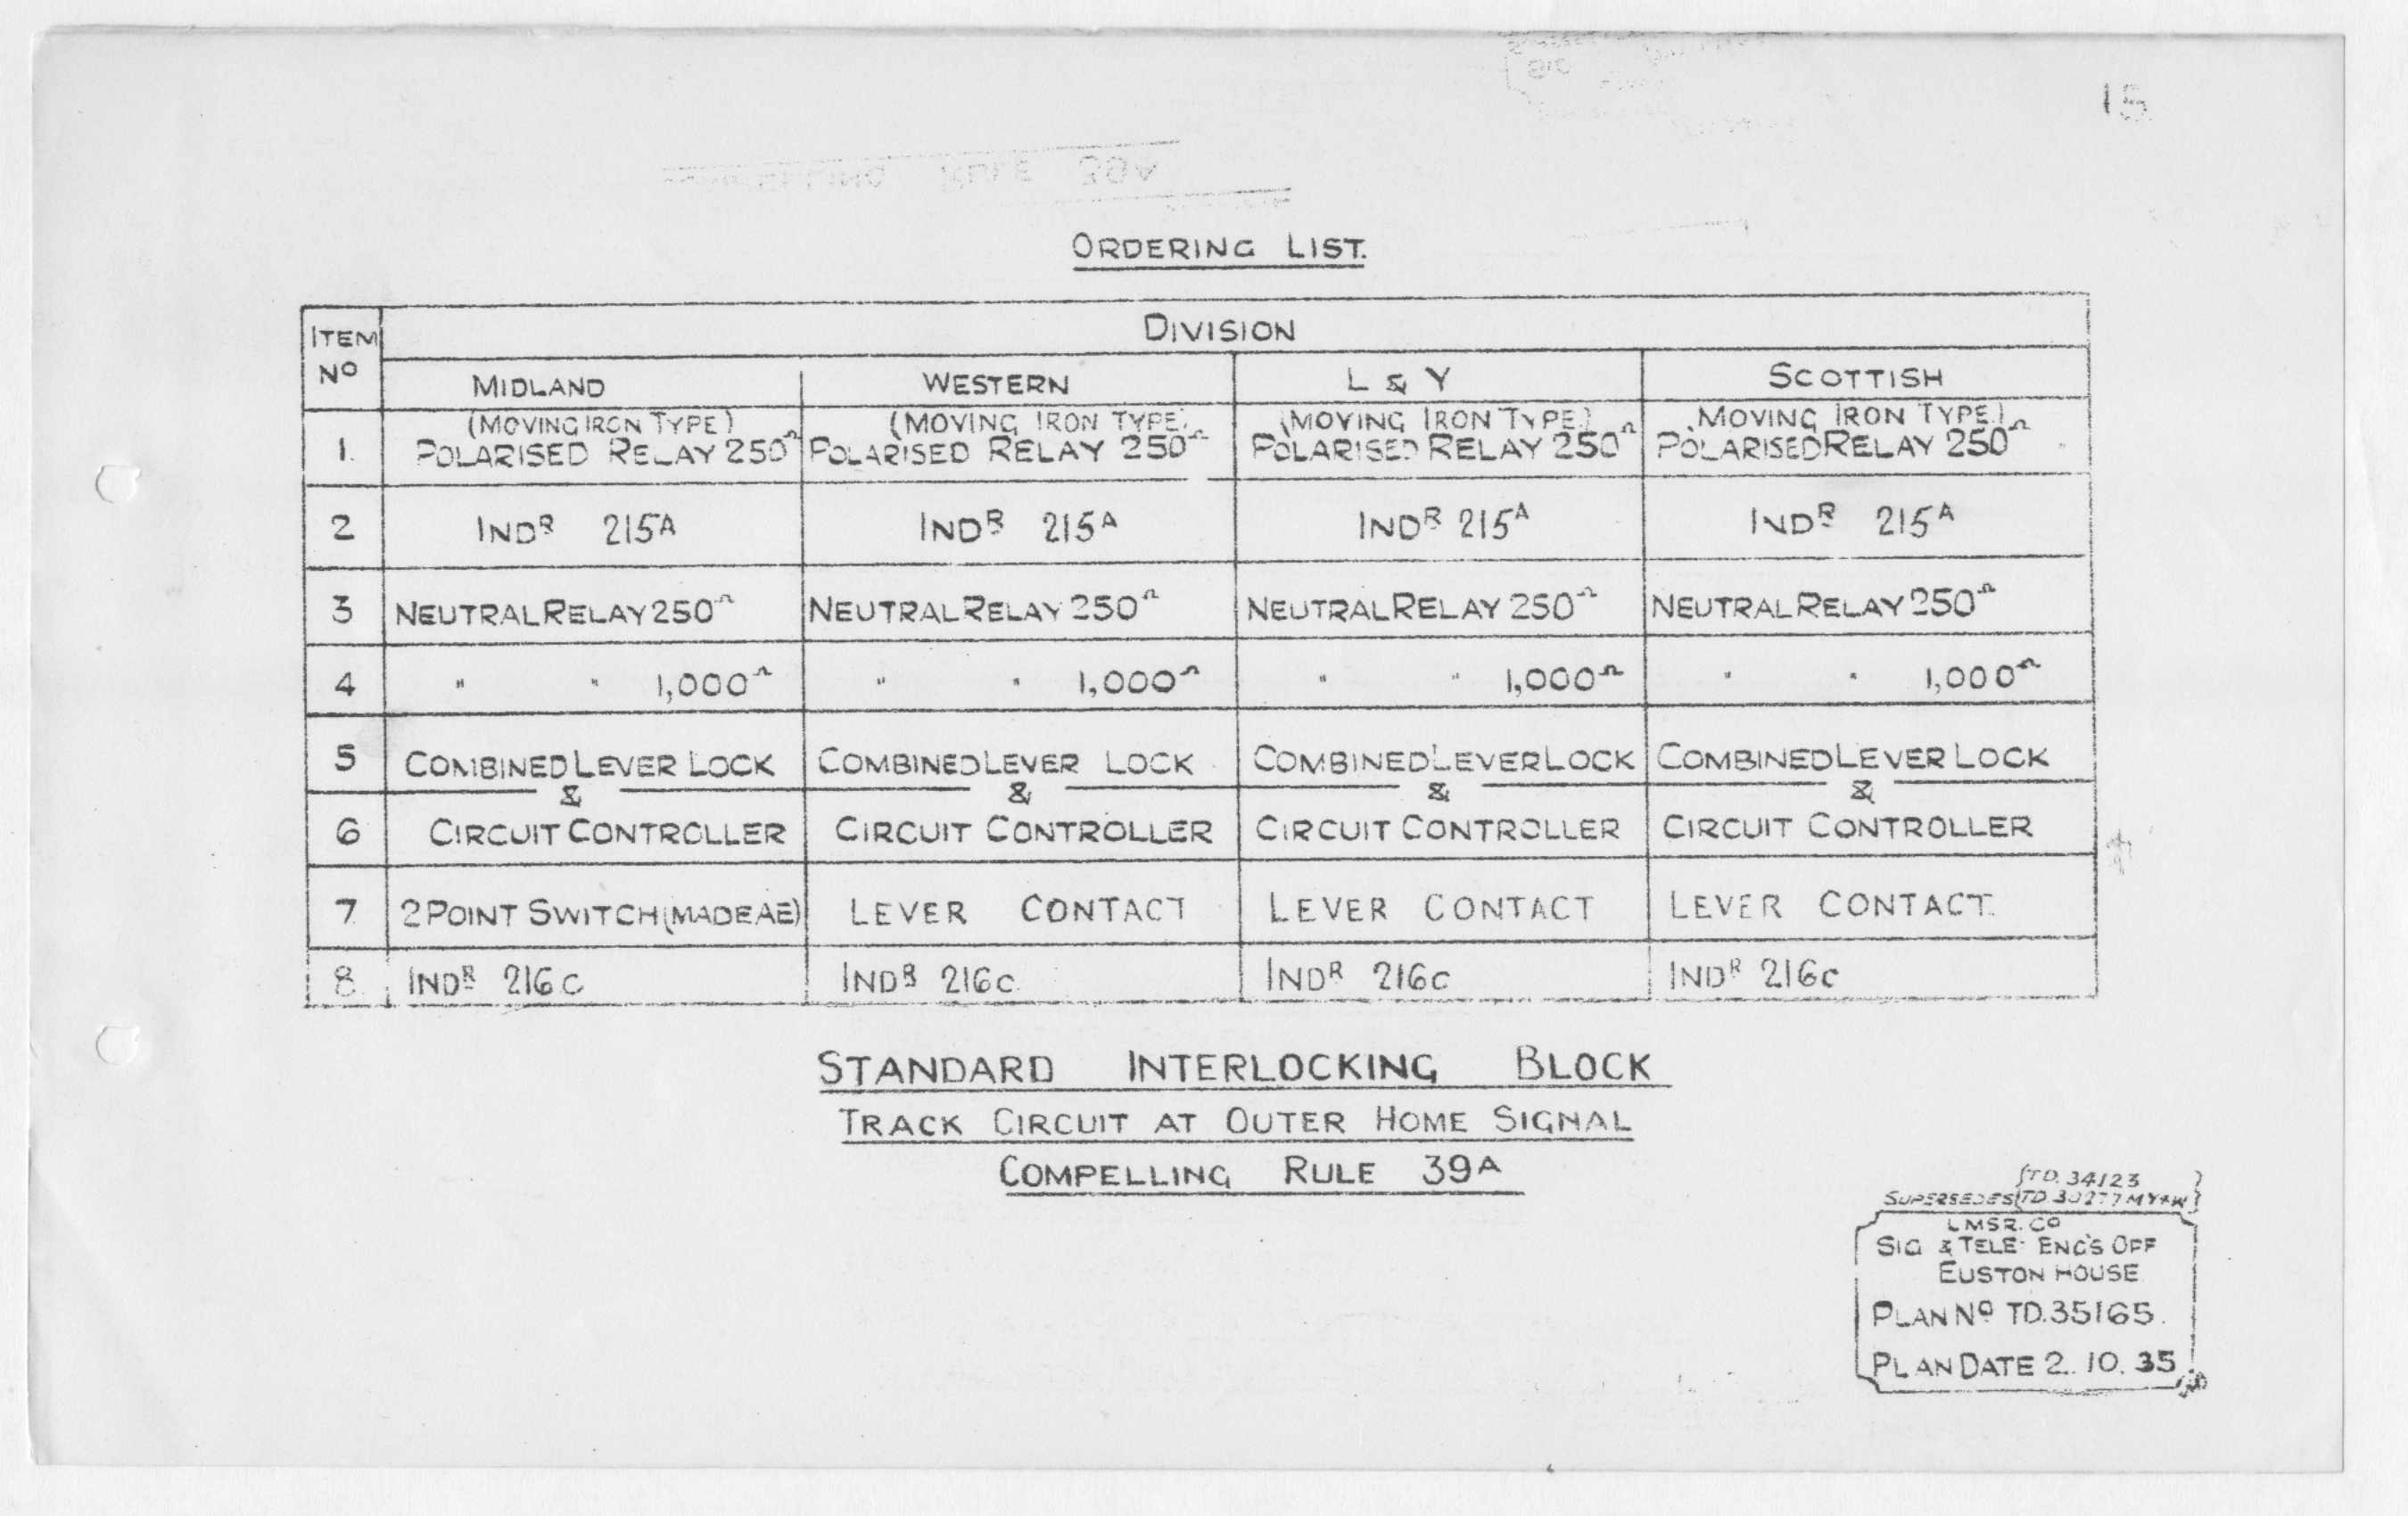 15
RULE 39A
ORDERING LIST.
ITEM NO
DIVISION
MIDLAND WESTERN L & Y SCOTTISH
1. (MOVING IRON TYPE) POLARISED RELAY 250Ω (MOVING IRON TYPE) POLARISED RELAY 250Ω (MOVING IRON TYPE) POLARISED RELAY 250Ω (MOVING IRON TYPE) POLARISED RELAY 250Ω
2 INDR 215A INDR 215A INDR 215A INDR 215A
3 NEUTRAL RELAY 250Ω NEUTRAL RELAY 250Ω NEUTRAL RELAY 250Ω NEUTRAL RELAY 250Ω
4 " " 1,000Ω " " 1,000Ω " " 1,000Ω " " 1,000Ω
5 COMBINED LEVER LOCK COMBINED LEVER LOCK COMBINED LEVER LOCK COMBINED LEVER LOCK
& & & &
6 CIRCUIT CONTROLLER CIRCUIT CONTROLLER CIRCUIT CONTROLLER CIRCUIT CONTROLLER
7 2 POINT SWITCH (MADE AE) LEVER CONTACT LEVER CONTACT LEVER CONTACT
8 INDR 216C INDR 216C INDR 216C INDR 216C
STANDARD INTERLOCKING BLOCK
TRACK CIRCUIT AT OUTER HOME SIGNAL
COMPELLING RULE 39A
{TD. 34123 }
SUPERSEDES {TD.
LMSR. CO
SIG & TELE ENG'S OFF
EUSTON HOUSE
PLAN NO TD.35165.
PLAN DATE 2. 10. 35